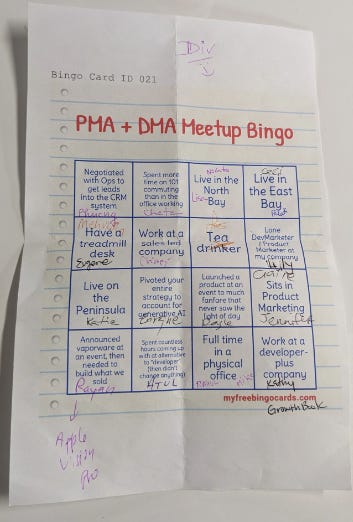 Div
Bingo Card ID 021
PMA + DMA Meetup Bingo
Negotiated
with Ops to
get leads
into the CRM
system
Spent more
time on 101
commuting than
in the office
working
Live in the
North
Bay
Live in
the East
Bay
Have a
treadmill
desk
Eugene
Work at a
sales led
company
Tea
drinker
Lone
DevMarketer
/ Product
Marketer at
my company
Live on
the
Peninsula
Katie
Pivoted your
entire
strategy to
account for
generative AI
Launched a
product at an
event to much
fanfare that
never saw the
light of day
Sits in
Product
Marketing
Jennifer
Announced
vaporware at
an event, then
needed to build
what we
sold
Spent countless
hours coming up
with at alternative
to "developer"
(then didn't
change anything)
Full time
in a
physical
office
Work at a
developer-
plus
company
Kathy
myfreebingocards.com
GrowthBook
Apple
Vision
Pro